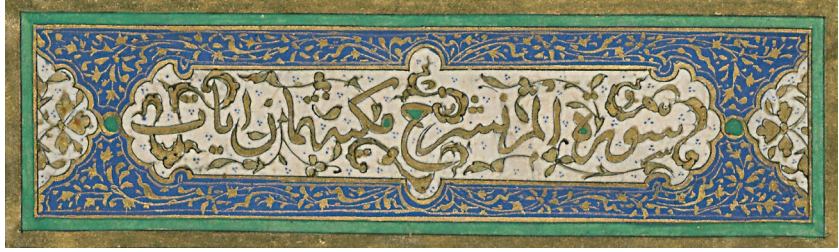 سورة الم نشرح مكية ثمان ايات